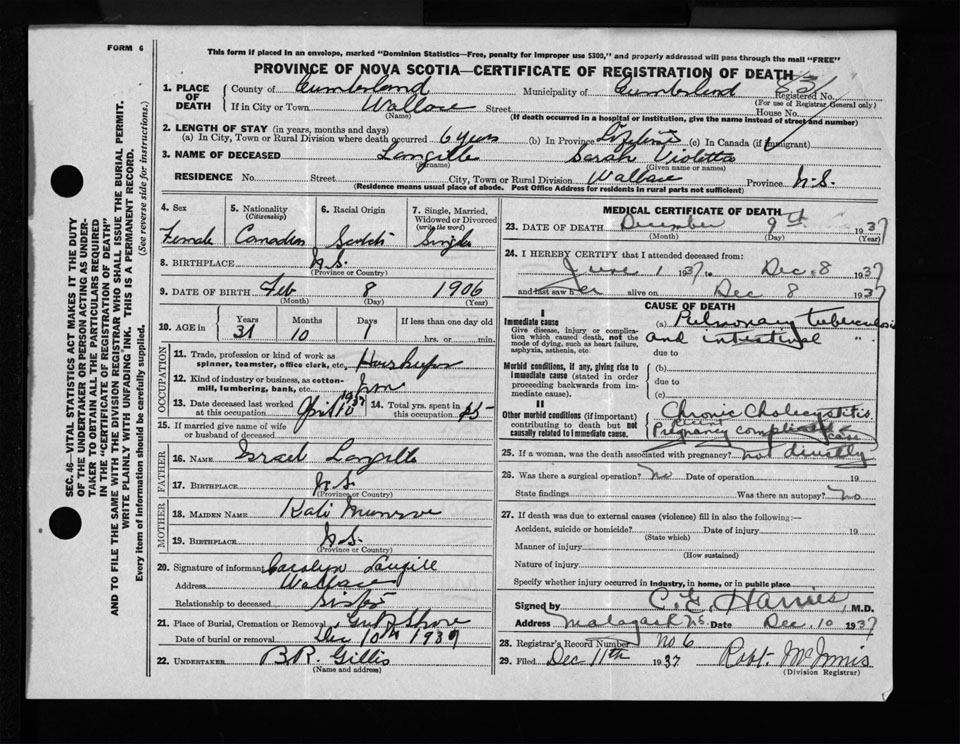 FORM 6
This form if placed in an envelope, marked "Dominion Statistics—Free, penalty for improper use $300," and properly addressed will pass through the mail "FREE"
PROVINCE OF NOVA SCOTIA—CERTIFICATE OF REGISTRATION OF DEATH
SEC. 46—VITAL STATISTICS ACT MAKES IT THE DUTY
OF THE UNDERTAKER OR PERSON ACTING AS UNDER-
TAKER TO OBTAIN ALL THE PARTICULARS REQUIRED
IN THE "CERTIFICATE OF REGISTRATION OF DEATH"
AND TO FILE THE SAME WITH THE DIVISION REGISTRAR WHO SHALL ISSUE THE BURIAL PERMIT.
WRITE PLAINLY WITH UNFADING INK. THIS IS A PERMANENT RECORD.
Every item of information should be carefully supplied. (See reverse side for instructions.)
1. PLACE OF DEATH County of Cumberland Municipality of Cumberland Registered No.
(For use of Registrar General only)
If in City or Town Wallace Street House No.
(Name) (If death occurred in a hospital or institution, give the name instead of street and number)
2. LENGTH OF STAY (in years, months and days)
(a) In City, Town or Rural Division where death occurred 6 years (b) In Province Lifetime (c) In Canada (if immigrant)
3. NAME OF DECEASED Langille Sarah Violetta
(Surname) (Given name or names)
RESIDENCE No. Street City, Town or Rural Division Wallace Province N.S.
(Residence means usual place of abode. Post Office Address for residents in rural parts not sufficient)
4. Sex 5. Nationality (Citizenship) 6. Racial Origin 7. Single, Married, Widowed or Divorced (write the word)
Female Canadian Scotch Single
8. BIRTHPLACE N.S.
(Province or Country)
9. DATE OF BIRTH Feb 8 1906
(Month) (Day) (Year)
10. AGE in Years Months Days If less than one day old
31 10 1 hrs. or min.
OCCUPATION
11. Trade, profession or kind of work as
spinner, teamster, office clerk, etc. Housekeeper
12. Kind of industry or business, as cotton-
mill, lumbering, bank, etc.
13. Date deceased last worked at this occupation April 10 1937 14. Total yrs. spent in this occupation
15. If married give name of wife
or husband of deceased
FATHER
16. NAME Israel Langille
17. BIRTHPLACE N.S.
(Province or Country)
MOTHER
18. MAIDEN NAME Kati Munroe
19. BIRTHPLACE N.S.
(Province or Country)
20. Signature of informant Carolyn Langille
Address Wallace
Relationship to deceased Sister
21. Place of Burial, Cremation or Removal Gulf Shore
Date of burial or removal Dec 10th 1937
22. UNDERTAKER B.R. Gillis
(Name and address)
MEDICAL CERTIFICATE OF DEATH
23. DATE OF DEATH December 9th 1937
(Month) (Day) (Year)
24. I HEREBY CERTIFY that I attended deceased from:
June 1 1937 to Dec. 8 1937
and last saw her alive on Dec 8 1937
CAUSE OF DEATH
I
Immediate cause (a) Pulmonary tuberculosis
Give disease, injury or complica- and intestinal "
tion which caused death, not the
mode of dying, such as heart failure, due to
asphyxia, asthenia, etc.
Morbid conditions, if any, giving rise to (b)
immediate cause (stated in order due to
proceeding backwards from im-
mediate cause). (c)
II
Other morbid conditions (if important) Chronic Cholecystitis.
contributing to death but not Recent
causally related to immediate cause. Pregnancy complicated case
25. If a woman, was the death associated with pregnancy? not directly
26. Was there a surgical operation? No Date of operation 19
State findings Was there an autopsy? No
27. If death was due to external causes (violence) fill in also the following:—
Accident, suicide or homicide? Date of injury 19
(State which)
Manner of injury
(How sustained)
Nature of injury
Specify whether injury occurred in industry, in home, or in public place
Signed by C. E. Harries, M.D.
Address Malagash N.S. Date Dec. 10 1937
28. Registrar's Record Number No 6
29. Filed Dec 11th 1937 Robt. McInnis
(Division Registrar)